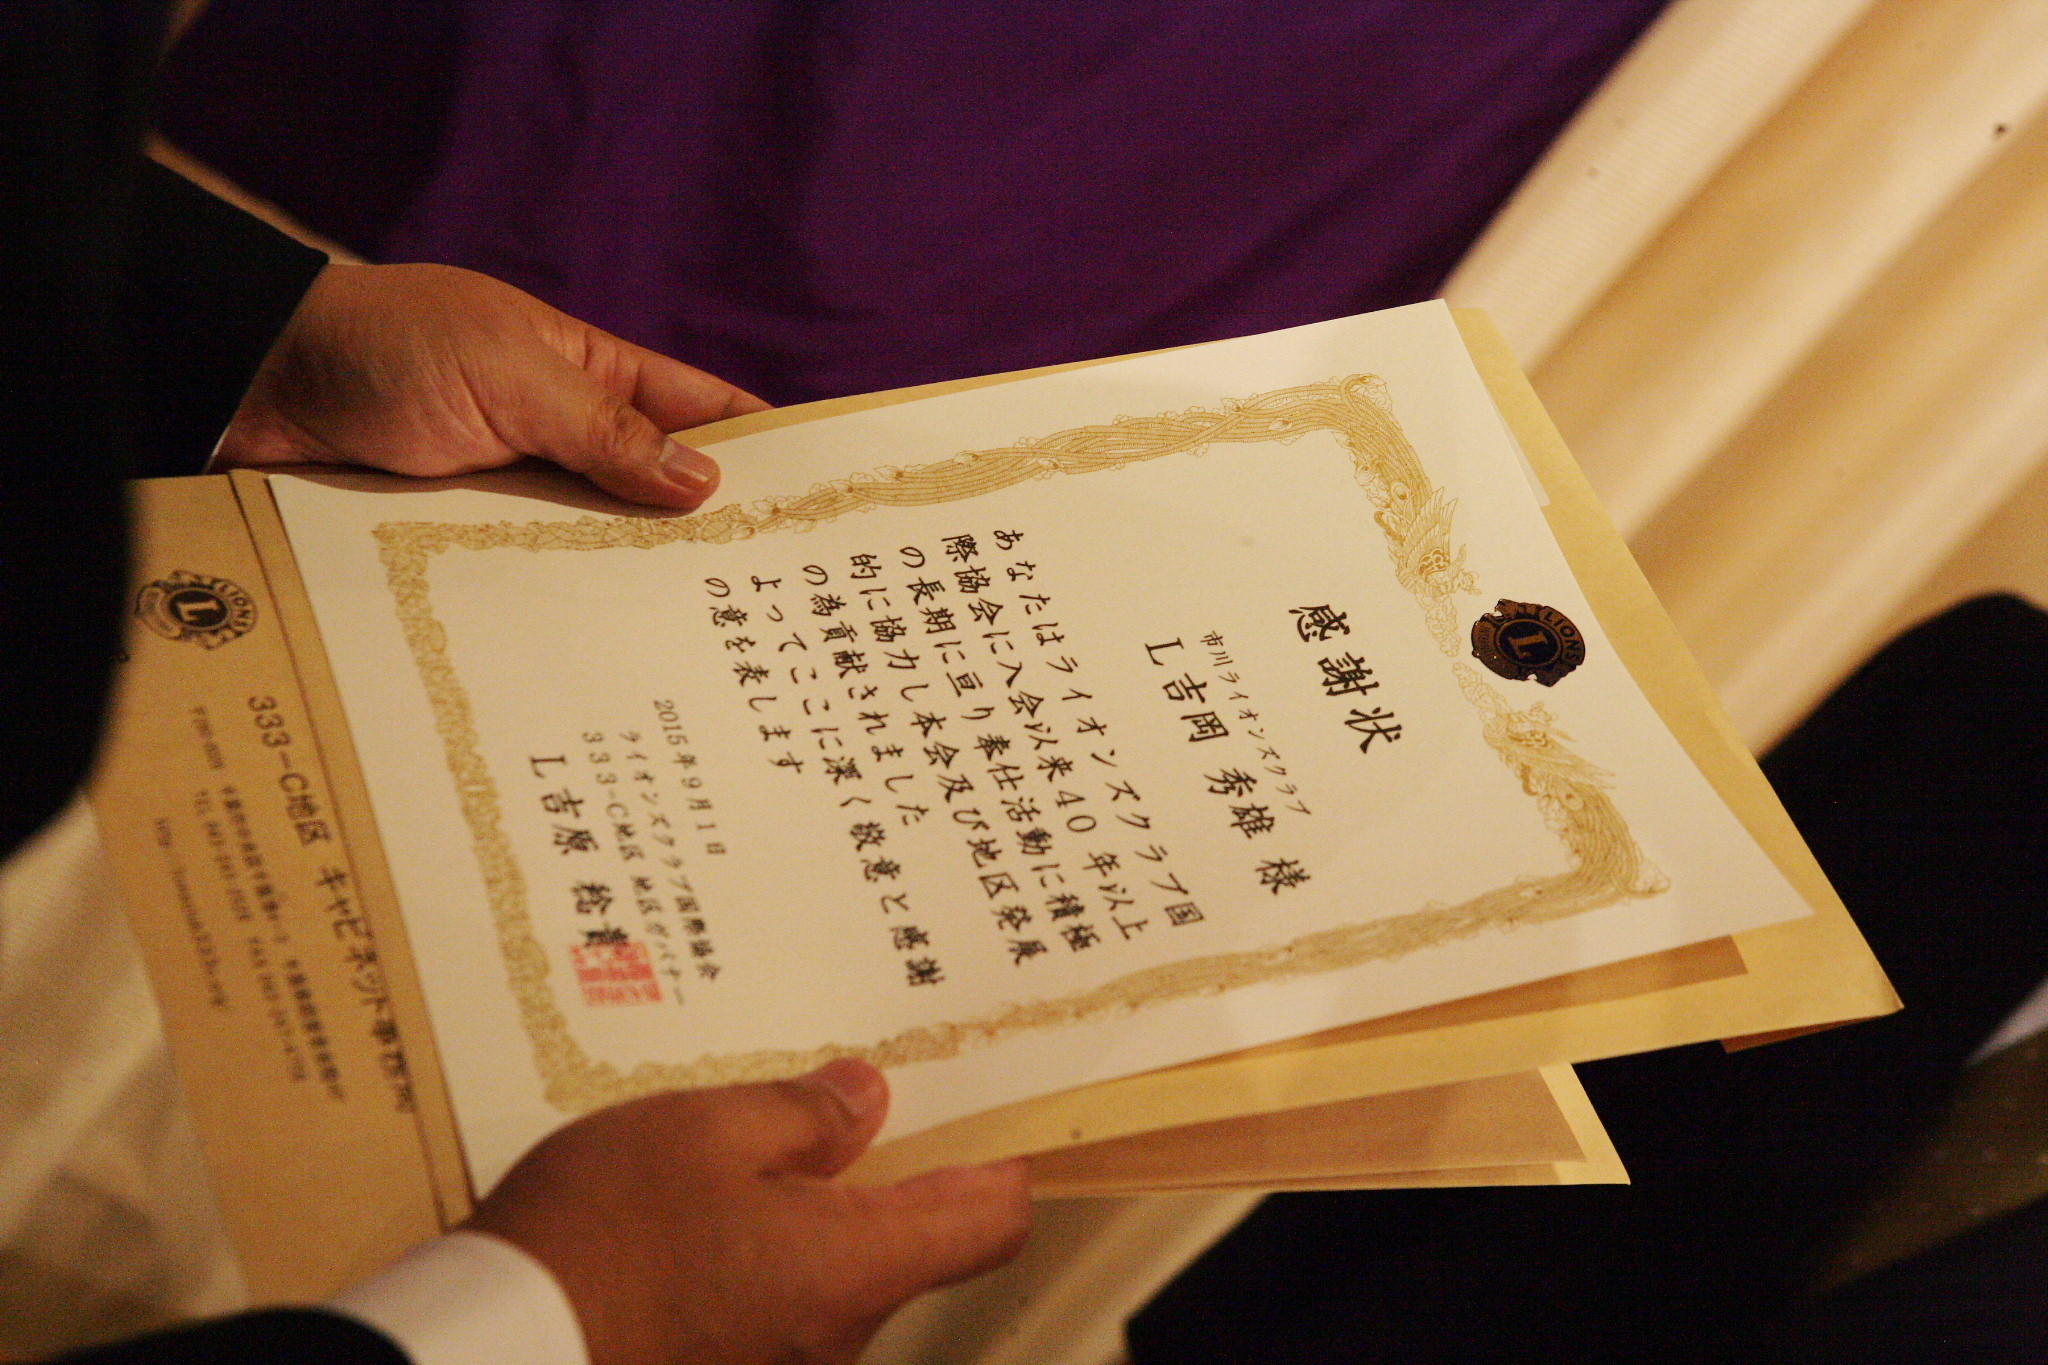 LIONS
L
感謝状
市川ライオンズクラブ
L 吉岡 秀雄 様
あなたはライオンズクラブ国
際協会に入会以来40年以上
の長期に亘り奉仕活動に積極
的に協力し本会及び地区発展
の為貢献されました
よってここに深く敬意と感謝
の意を表します
2015年9月1日
ライオンズクラブ国際協会
333-C地区 地区ガバナー
L 吉原 稔貴
LIONS
L
333-C地区 キャビネット事務局